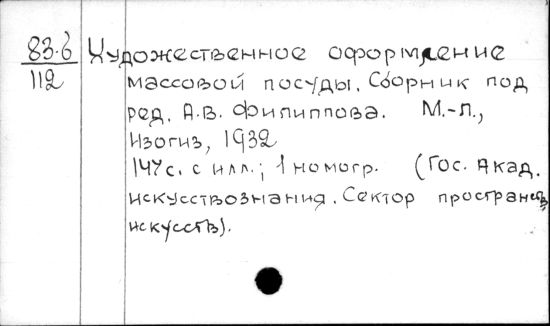 83.6 Художественное оформление
112 массовой посуды. Сборник под
ред. А.В. Филиппова. М.-Л.,
Изогиз, 1932
147с. с илл.; 1 номогр. (Гос. Акад.
искусствознания. Сектор пространств
искусств).